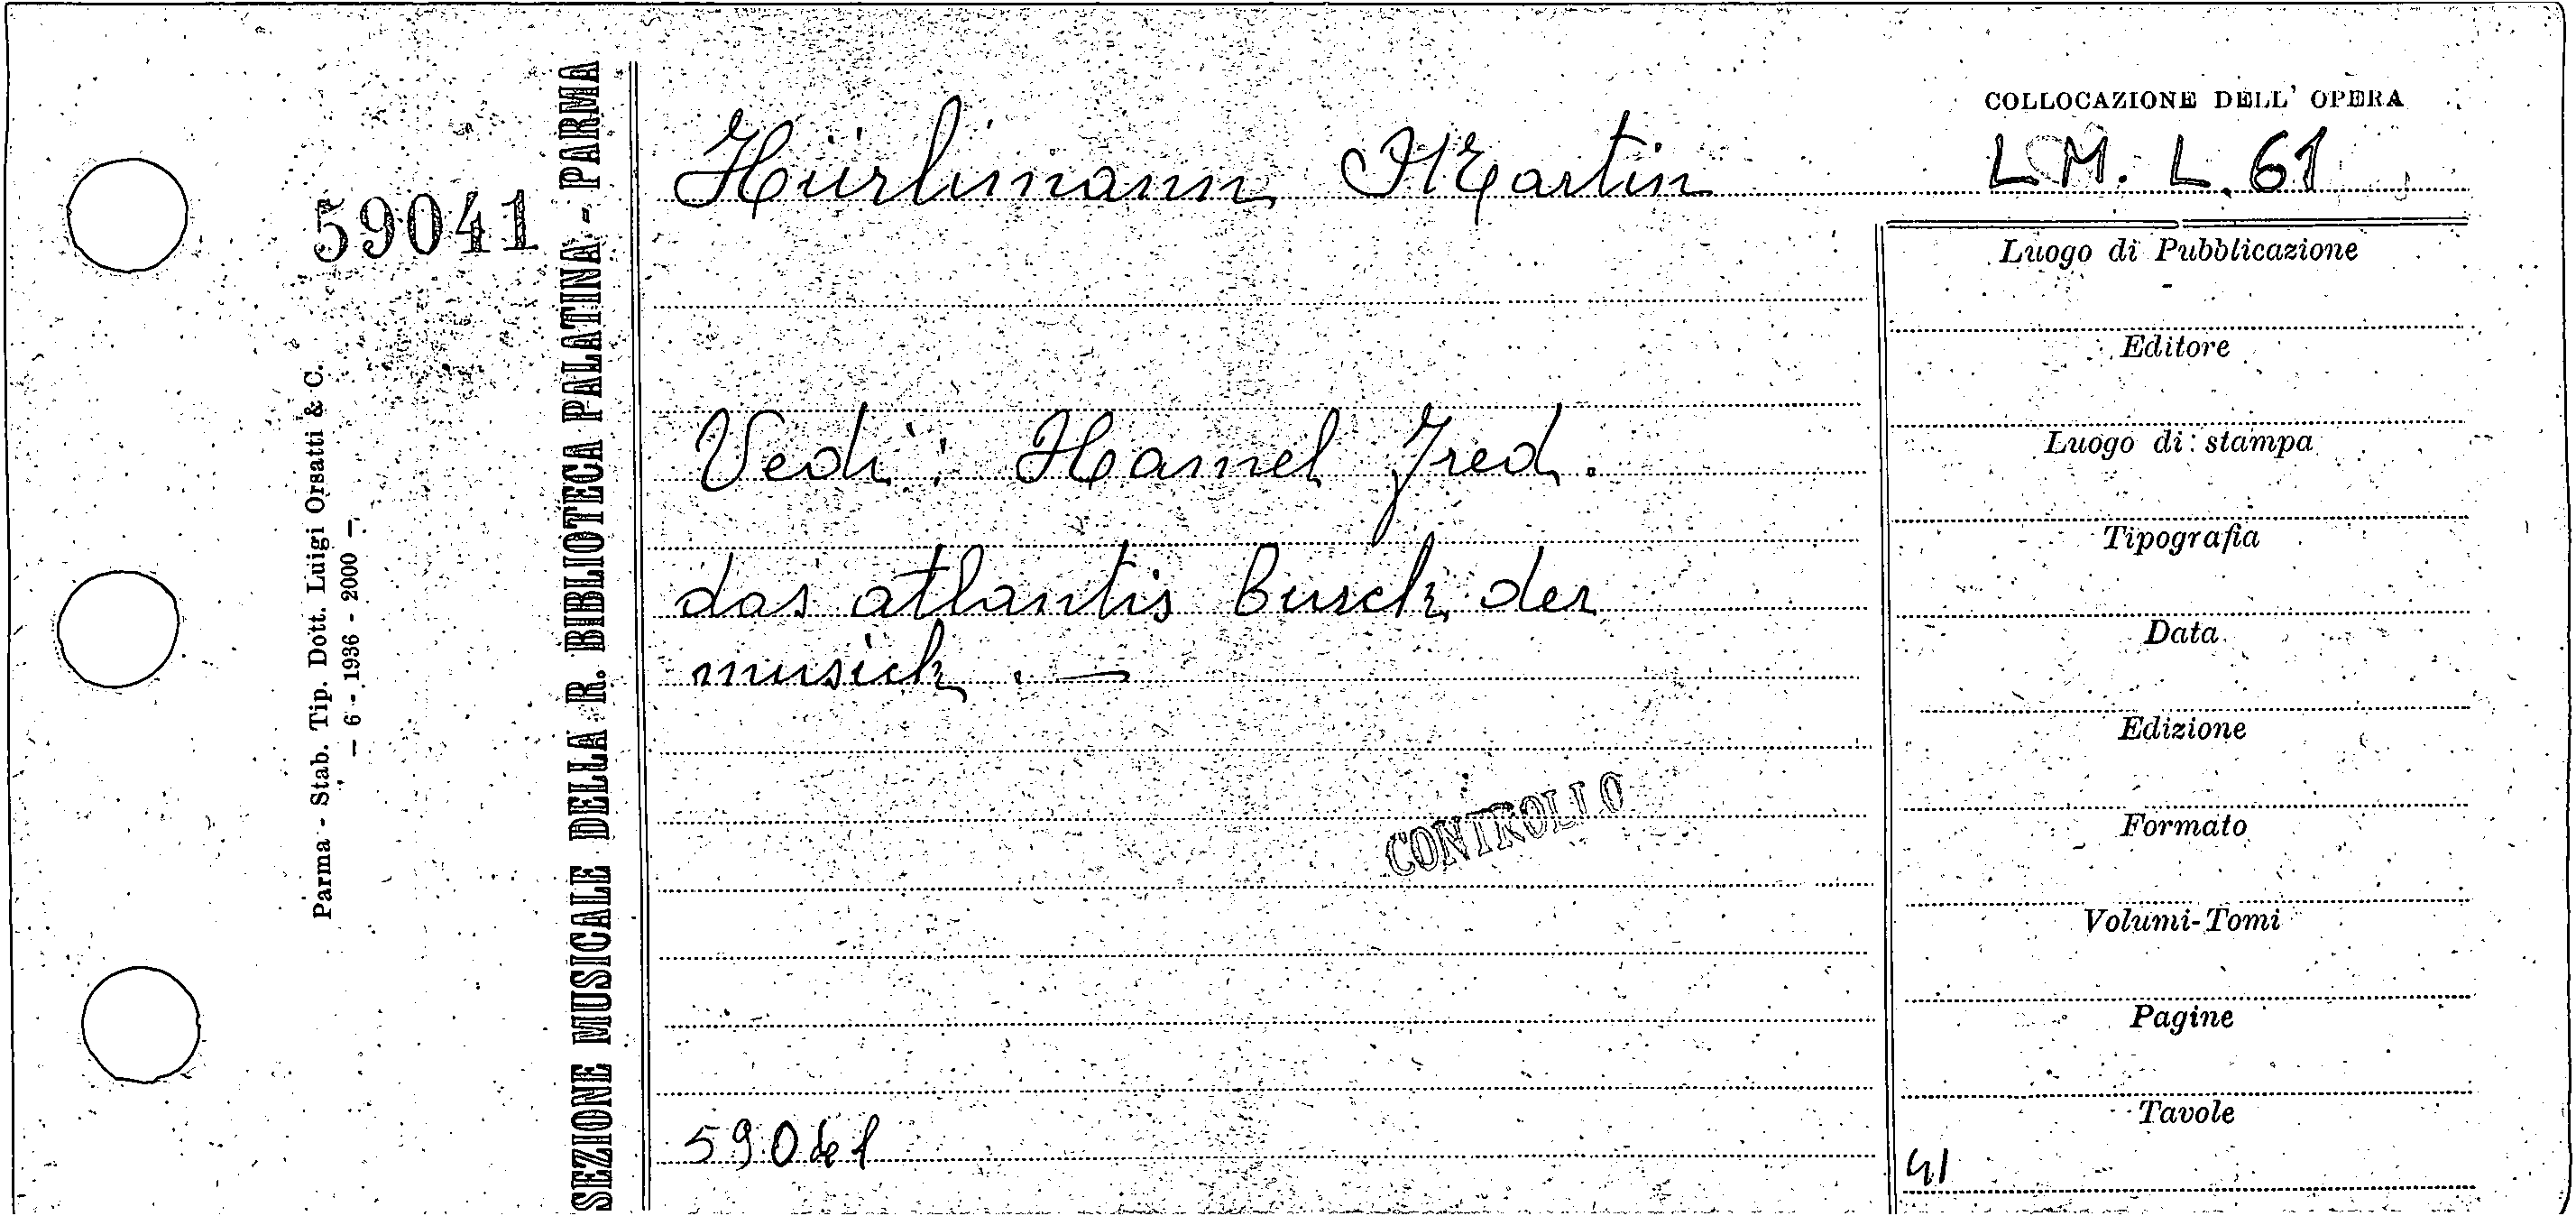 COLLOCAZIONE DELL' OPERA
Hürlimann Martin
L M. L. 61
59041
SEZIONE MUSICALE DELLA R. BIBLIOTECA PALATINA - PARMA
Parma - Stab. Tip. Dott. Luigi Orsatti & C.
- 6 - 1936 - 2000 -
Vedi: Hamel Fred.
das atlantis Busch der
musick . —
CONTROLLO
59041
Luogo di Pubblicazione
Editore
Luogo di stampa
Tipografia
Data
Edizione
Formato
Volumi-Tomi
Pagine
Tavole
41